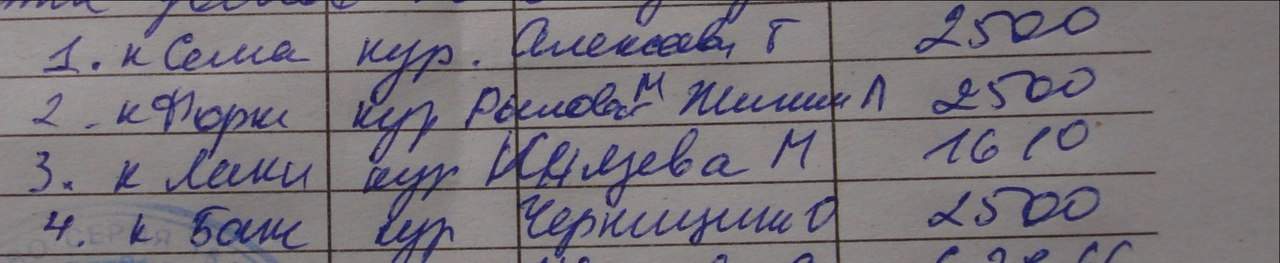 1. к Сема кур. Алексеева Т 2500
2. к Форн кур Рылова М Жилин Л 2500
3. к Лаки кур Князева М 1610
4. к Бакс кур О 2500